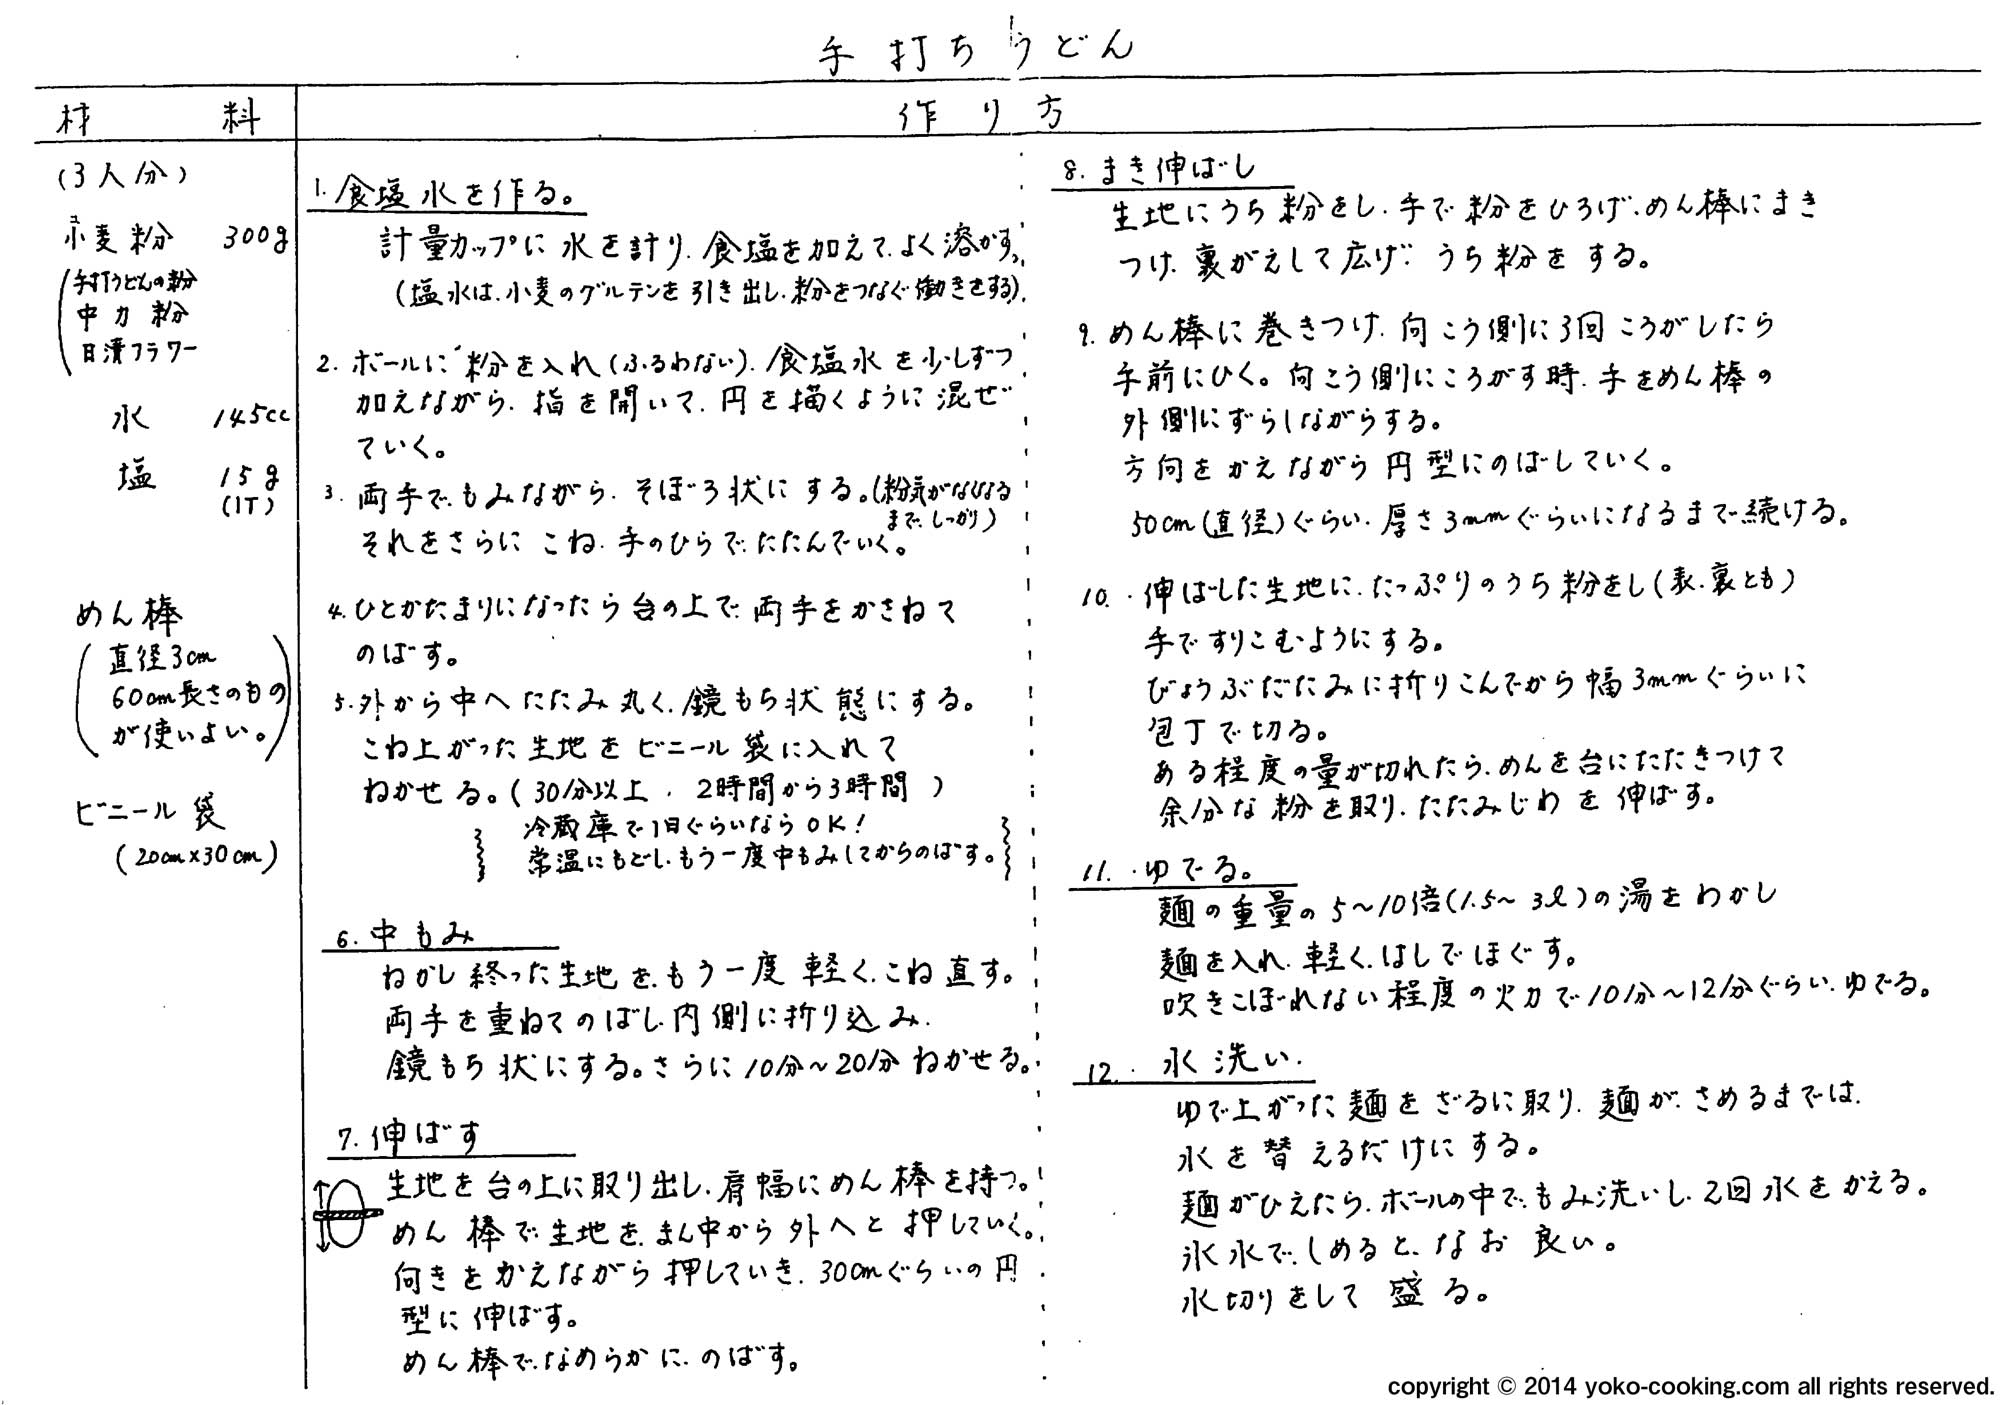 手打ちうどん
材料
作り方
(3人分)
小麦粉 300g
手打うどんの粉
中力粉
日清フラワー
水 145cc
塩 15g
(1T)
めん棒
直径3cm
60cm長さのもの
が使いよい。
ビニール袋
(20cm×30cm)
1. 食塩水を作る。
計量カップに水を計り、食塩を加えて、よく溶かす。
(塩水は、小麦のグルテンを引き出し、粉をつなぐ働きをする)
2. ボールに粉を入れ(ふるわない)、食塩水を少しずつ
加えながら、指を開いて、円を描くように混ぜ
ていく。
3. 両手で、もみながら、そぼろ状にする。(粉気がなくなる
まで、しっかり)
それをさらにこね、手のひらで、たたんでいく。
4. ひとかたまりになったら台の上で、両手をかさねて
のばす。
5. 外から中へたたみ丸く、鏡もち状態にする。
こね上がった生地をビニール袋に入れて
ねかせる。(30分以上、2時間から3時間)
冷蔵庫で1日ぐらいならOK!
常温にもどし、もう一度中もみしてからのばす。
6. 中もみ
ねかし終った生地を、もう一度軽く、こね直す。
両手を重ねてのばし、内側に折り込み、
鏡もち状にする。さらに10分～20分ねかせる。
7. 伸ばす
生地を台の上に取り出し、肩幅にめん棒を持つ。
めん棒で、生地を、まん中から外へと押していく。
向きをかえながら押していき、30cmぐらいの円
型に伸ばす。
めん棒で、なめらかに、のばす。
8. まき伸ばし
生地にうち粉をし、手で粉をひろげ、めん棒にまき
つけ、裏がえして広げ、うち粉をする。
9. めん棒に巻きつけ、向こう側に3回ころがしたら
手前にひく。向こう側にころがす時、手をめん棒の
外側にずらしながらする。
方向をかえながら円型にのばしていく。
50cm(直径)ぐらい、厚さ3mmぐらいになるまで続ける。
10. 伸ばした生地に、たっぷりのうち粉をし(表、裏とも)
手ですりこむようにする。
びょうぶだたみに折りこんでから幅3mmぐらいに
包丁で切る。
ある程度の量が切れたら、めんを台にたたきつけて
余分な粉を取り、たたみじわを伸ばす。
11. ゆでる。
麺の重量の5～10倍(1.5～3ℓ)の湯をわかし
麺を入れ、軽く、はしでほぐす。
吹きこぼれない程度の火力で10分～12分ぐらい、ゆでる。
12. 水洗い、
ゆで上がった麺をざるに取り、麺が、さめるまでは、
水を替えるだけにする。
麺がひえたら、ボールの中で、もみ洗いし、2回水をかえる。
氷水で、しめると、なお良い。
水切りをして盛る。
copyright © 2014 yoko-cooking.com all rights reserved.